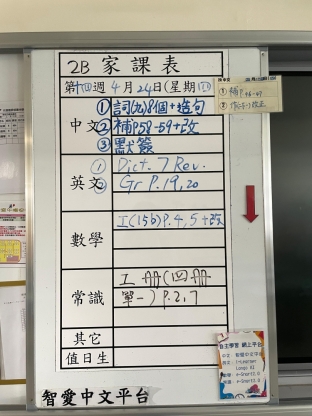 2B 家課表
第十四週 4月24日(星期四)
中文
①詞(九)8個+造句
②補P.58-59+改
③默簽
英文
① Dict. 7 Rev.
② Gr P.19,20
數學
工(15b)P.4,5+改
常識
工冊(四冊
單一)P.2,7
其它
值日生
智愛中文平台
自主學習 網上平台